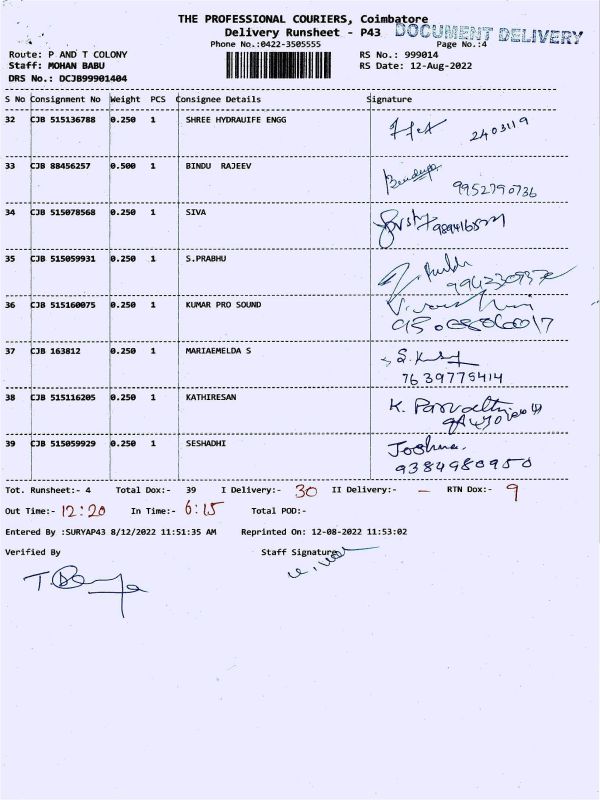 THE PROFESSIONAL COURIERS, Coimbatore
Delivery Runsheet - P43 DOCUMENT DELIVERY
Phone No.:0422-3505555 Page No.:4
Route: P AND T COLONY RS No.: 999014
Staff: MOHAN BABU RS Date: 12-Aug-2022
DRS No.: DCJB99901404
S No Consignment No Weight PCS Consignee Details Signature
32 CJB 515136788 0.250 1 SHREE HYDRAUIFE ENGG 2403119
33 CJB 88456257 0.500 1 BINDU RAJEEV
9952790736
34 CJB 515078568 0.250 1 SIVA
35 CJB 515059931 0.250 1 S.PRABHU
36 CJB 515160075 0.250 1 KUMAR PRO SOUND
37 CJB 163812 0.250 1 MARIAEMELDA S
7639775414
38 CJB 515116205 0.250 1 KATHIRESAN K. Parvathi
39 CJB 515059929 0.250 1 SESHADHI Joshua.
9384980950
Tot. Runsheet:- 4 Total Dox:- 39 I Delivery:- 30 II Delivery:- – RTN Dox:- 9
Out Time:- 12:20 In Time:- 6:15 Total POD:-
Entered By :SURYAP43 8/12/2022 11:51:35 AM Reprinted On: 12-08-2022 11:53:02
Verified By Staff Signature